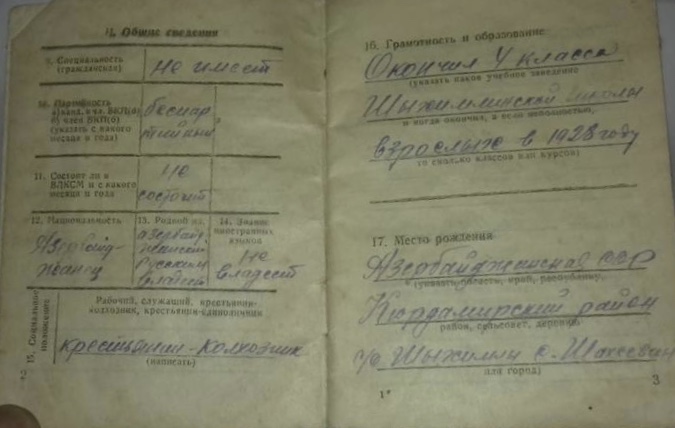 II. Общие сведения
9. Специальность
(гражданская)
не имеет
10. Партийность
а) канд. в чл. ВКП(б)
б) член ВКП(б)
(указать с какого
месяца и года)
беспар
тийный
11. Состоит ли в
ВЛКСМ и с какого
месяца и года
не
состоит
12. Национальность
Азербайд-
жанец
13. Родной яз.
азербайд
жанский
русским
владеет
14. Знание
иностранных
языков
не
владеет
15. Социальное
положение
Рабочий, служащий, крестьянин-
колхозник, крестьянин-единоличник
крестьянин-колхозник
(написать)
16. Грамотность и образование
Окончил 4 класса
(указать какое учебное заведение
школы
и когда окончил, а если неполностью,
взрослых в 1928 году
то сколько классов или курсов)
17. Место рождения
Азербайджанская ССР
(указать область, край, республику,
Кюрдамирский район
район, сельсовет, деревню
с/с Шыхимлы с.
или город)
1*
3